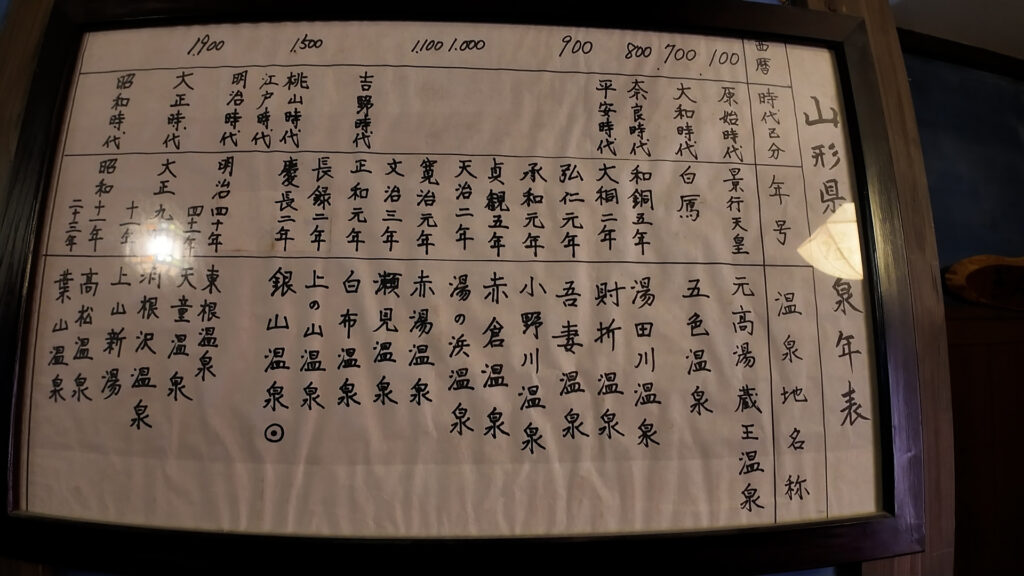 山形県
泉年表
西暦
時代区分
年号
温泉地名称
100
原始時代
景行天皇
元高湯 蔵王温泉
700
大和時代
白鳳
五色温泉
800
奈良時代
和銅五年
湯田川温泉
平安時代
大桐二年
肘折温泉
900
弘仁元年
吾妻温泉
承和元年
小野川温泉
貞観五年
赤倉温泉
1.000
天治二年
湯の浜温泉
1.100
寛治元年
赤湯温泉
文治三年
瀬見温泉
吉野時代
正和元年
白布温泉
1.500
長録二年
上の山温泉
桃山時代
慶長二年
銀山温泉◎
江戸時代
明治時代
明治四十年
東根温泉
1.900
四十
天童温泉
大正時代
大正九
根沢温泉
十一年
上山新湯
昭和時代
昭和十一年
高松温泉
二十三年
葉山温泉